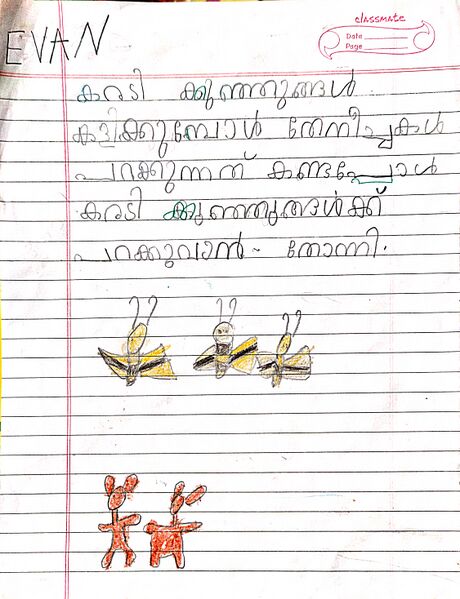 classmate
Date
Page
EVAN
കരടി കുഞ്ഞുങ്ങൾ
കളിക്കുമ്പോൾ തേനീച്ചകൾ
പറക്കുന്നത് കണ്ടപ്പോൾ
കരടി കുഞ്ഞുങ്ങൾക്ക്
പറക്കുവാൻ തോന്നി.